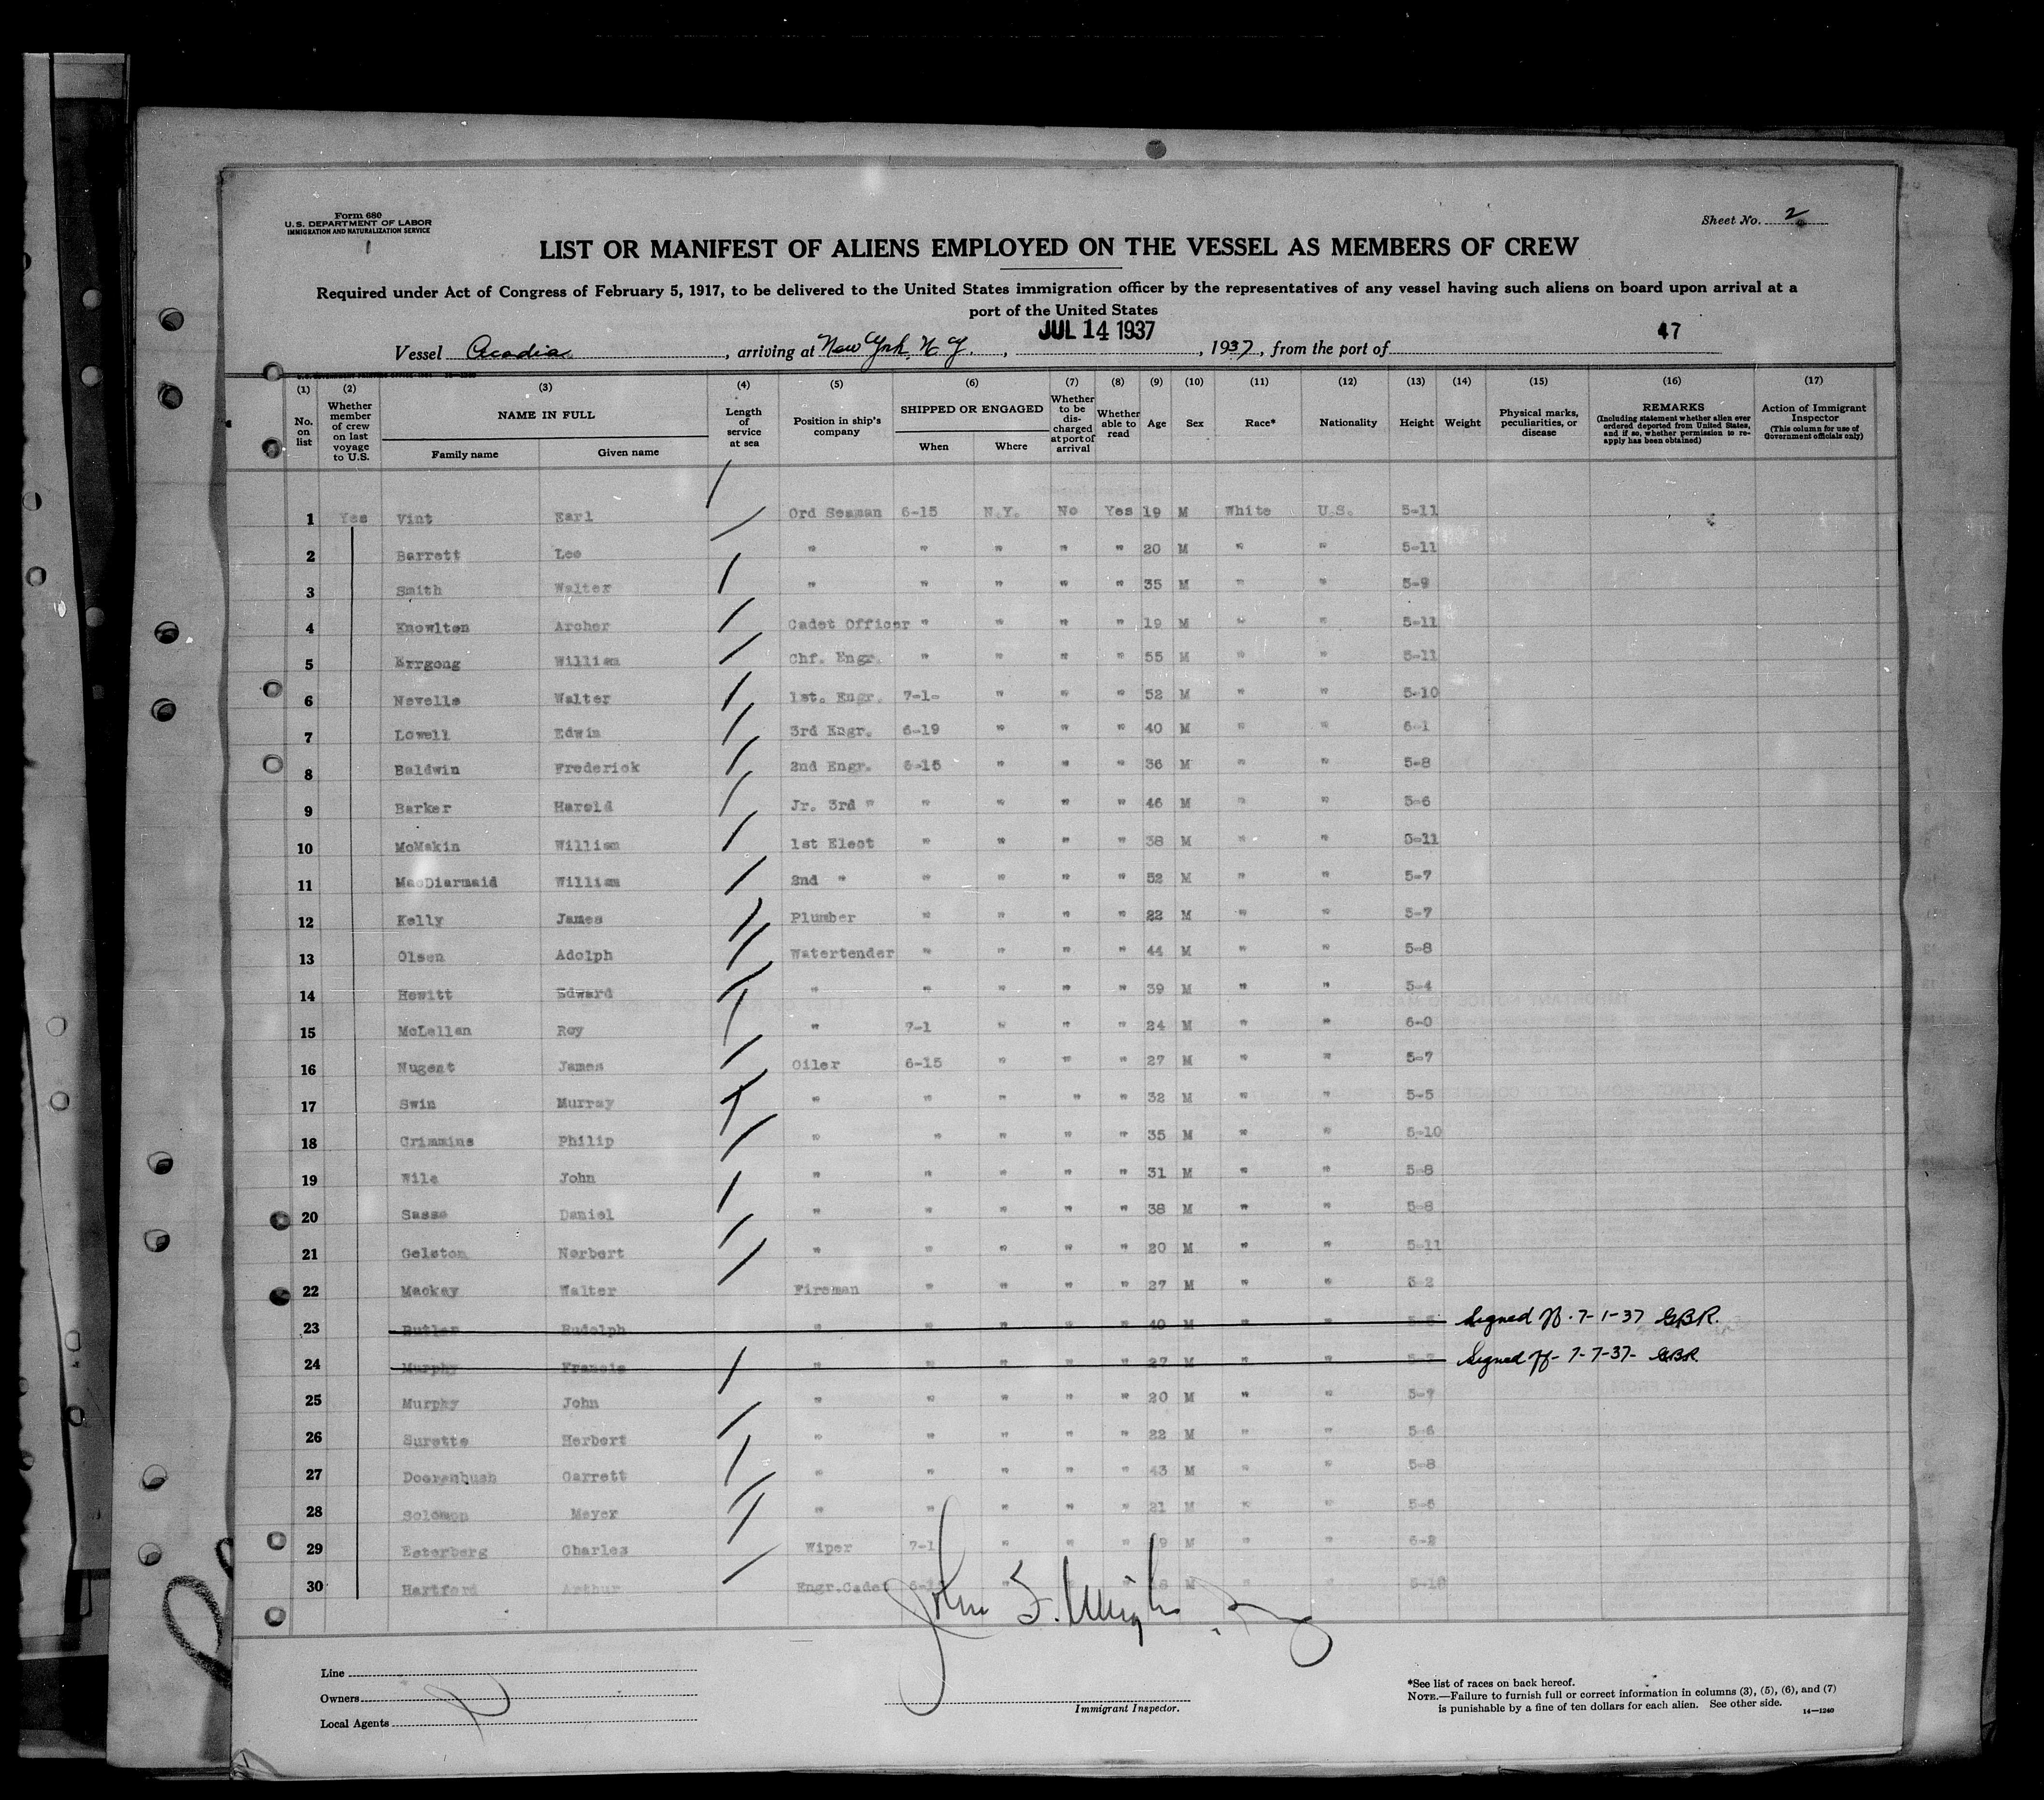 Form 680
U.S. DEPARTMENT OF LABOR
IMMIGRATION AND NATURALIZATION SERVICE
Sheet No. 2
LIST OR MANIFEST OF ALIENS EMPLOYED ON THE VESSEL AS MEMBERS OF CREW
Required under Act of Congress of February 5, 1917, to be delivered to the United States immigration officer by the representatives of any vessel having such aliens on board upon arrival at a
port of the United States
Vessel Acadia, arriving at New York, N.Y., JUL 14 1937, 1937, from the port of 47
(1) (2) (3) (4) (5) (6) (7) (8) (9) (10) (11) (12) (13) (14) (15) (16) (17)
No. on list
Whether member of crew on last voyage to U.S.
NAME IN FULL
Family name Given name
Length of service at sea
Position in ship's company
SHIPPED OR ENGAGED
When Where
Whether to be discharged at port of arrival
Whether able to read
Age Sex Race* Nationality Height Weight
Physical marks, peculiarities, or disease
REMARKS
(Including statement whether alien ever ordered deported from United States, and if so, whether permission to reapply has been obtained)
Action of Immigrant Inspector
(This column for use of Government officials only)
1 Yes Vint Earl Ord Seaman 6-15 N.Y. No Yes 19 M White U.S. 5-11
2 Barrett Leo " " " " " 20 M " " 5-11
3 Smith Walter " " " " " 35 M " " 5-9
4 Knowlton Archer Cadet Officer " " " " 19 M " " 5-11
5 Errgong William Chf. Engr. " " " " 55 M " " 5-11
6 Nevells Walter 1st. Engr. 7-1- " " " 52 M " " 5-10
7 Lowell Edwin 3rd Engr. 6-19 " " " 40 M " " 6-1
8 Baldwin Frederick 2nd Engr. 6-15 " " " 36 M " " 5-8
9 Barker Harold Jr. 3rd " " " " " 46 M " " 5-6
10 McMakin William 1st Elect " " " " 38 M " " 5-11
11 MacDiarmaid William 2nd " " " " " 52 M " " 5-7
12 Kelly James Plumber " " " " 22 M " " 5-7
13 Olsen Adolph Watertender " " " " 44 M " " 5-8
14 Hewitt Edward " " " " " 39 M " " 5-4
15 McLellan Roy " 7-1 " " " 24 M " " 6-0
16 Nugent James Oiler 6-15 " " " 27 M " " 5-7
17 Swim Murray " " " " " 32 M " " 5-5
18 Crimmins Philip " " " " " 35 M " " 5-10
19 Wile John " " " " " 31 M " " 5-8
20 Sasso Daniel " " " " " 38 M " " 5-8
21 Gelston Norbert " " " " " 20 M " " 5-11
22 Mackay Walter Fireman " " " " 27 M " " 5-2
23 Butler Rudolph " " " " " 40 M " " Signed off 7-1-37 GBR.
24 Murphy Francis " " " " " 27 M " " Signed off- 7-7-37- GBR
25 Murphy John " " " " " 20 M " "
26 Surette Herbert " " " " " 22 M " " 5-6
27 Doerenbush Garrett " " " " " 43 M " " 5-8
28 Solomon Meyer " " " " " 21 M " "
29 Esterberg Charles Wiper 7-1 " " " M " "
30 Hartford Arthur Engr.Cadet " " " M " " 5-10
Line
Owners
Local Agents
Immigrant Inspector.
*See list of races on back hereof.
NOTE.—Failure to furnish full or correct information in columns (3), (5), (6), and (7)
is punishable by a fine of ten dollars for each alien. See other side.
14—1240